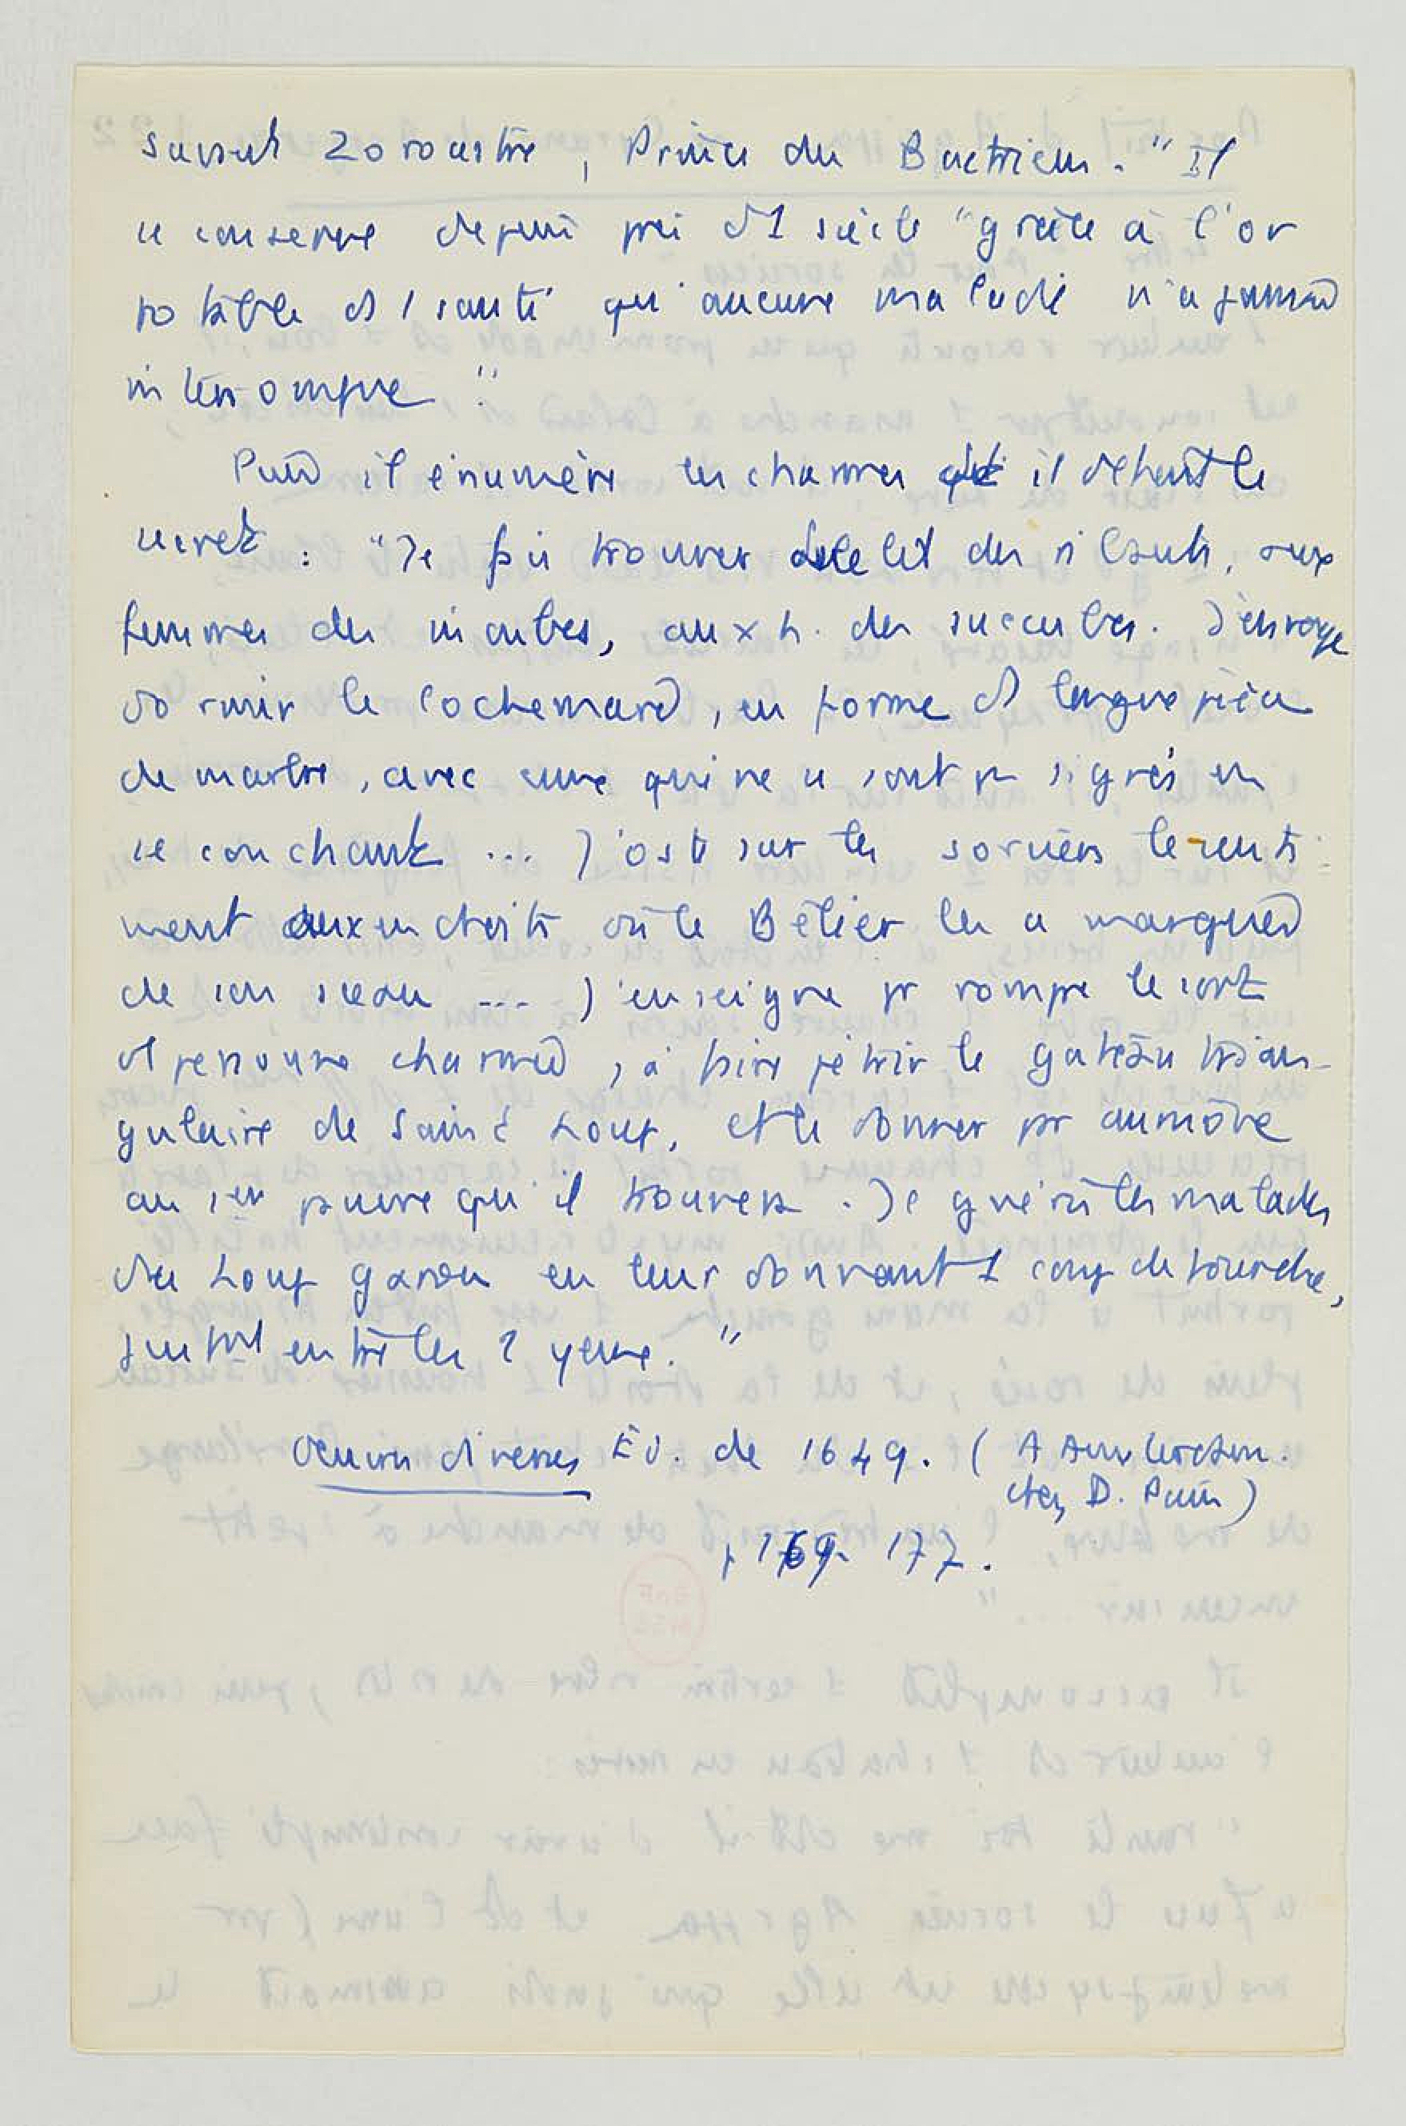 savant Zoroastre, Prince des Bactriens." Il
se conserve depuis près d'1 siècle "grâce à l'or
potable ds 1 santé qu'aucune maladie n'a jamais
interrompue."
Puis il énumère les charmes dt il détient le
secret : "Je fais trouver le lit des , aux
femmes des incubes, aux h. des succubes. J'envoye
dormir le Cochemard, en forme d longue pièce
de marbre, avec ceux qui ne se sont pr signés en
se couchant ... J'oste sur les sorciers le senti-
ment aux endroits où le Bélier les a marqués
de son sceau ... J'enseigne pr rompre le sort
d personne charmée, à faire pétrir le gateau trian-
gulaire de Saint Loup, et le donner pr aumône
au 1er pauvre qu'il trouvera. Je guéris les malades
du Loup garou en leur donnant 1 coup de fourche,
juste entre les 2 yeux."
Oeuvres diverses Éd. de 1649. (Amsterdam.
chez D. Pain)
p 169- 177.